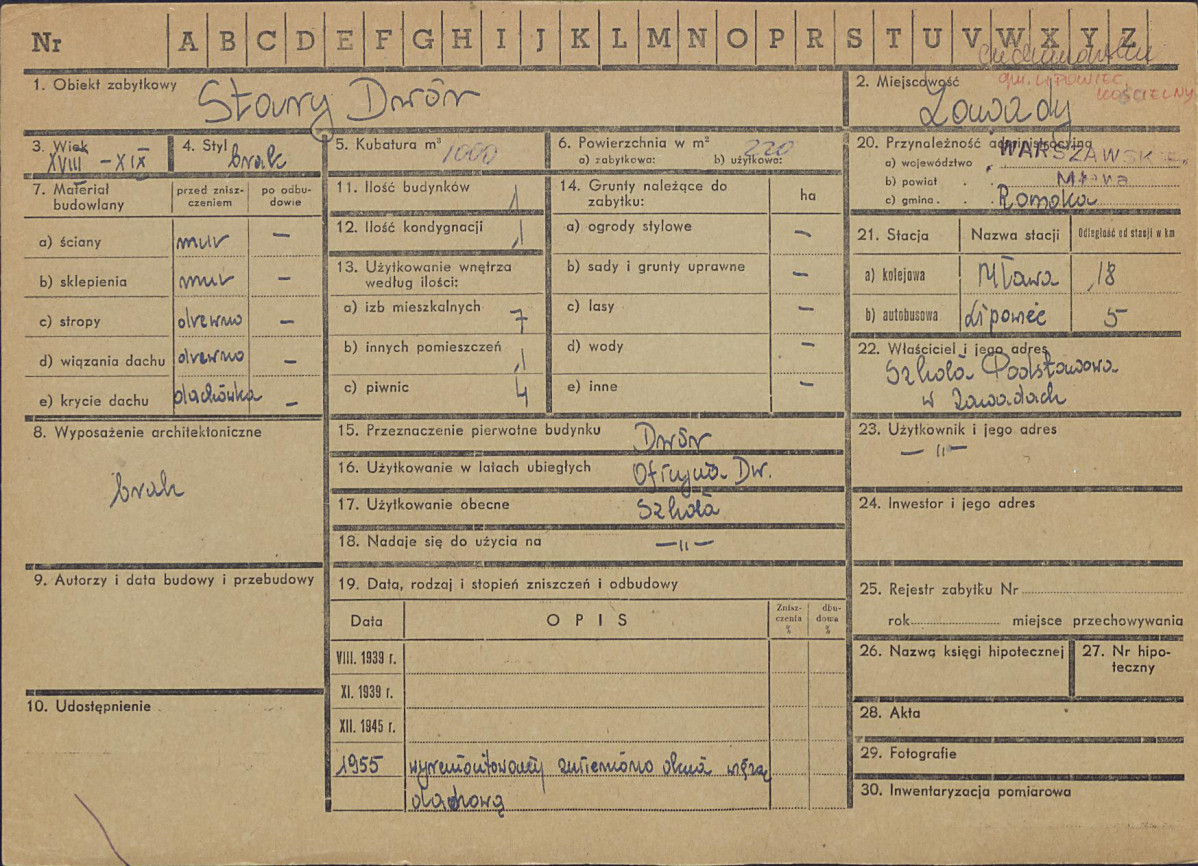 Nr A B C D E F G H I J K L M N O P R S T U V W X Y Z
gm. LIPOWIEC
KOŚCIELNY
1. Obiekt zabytkowy
Stary Dwór
2. Miejscowość
Zawady
3. Wiek
XVIII – XIX
4. Styl
brak
5. Kubatura m³
1000
6. Powierzchnia w m²
a) zabytkowa: b) użytkowa:
220
7. Materiał budowlany
przed zniszczeniem
po odbudowie
a) ściany mur –
b) sklepienia mur –
c) stropy drewno –
d) wiązania dachu drewno –
e) krycie dachu dachówka –
8. Wyposażenie architektoniczne
brak
9. Autorzy i data budowy i przebudowy
10. Udostępnienie
11. Ilość budynków 1
12. Ilość kondygnacji 1
13. Użytkowanie wnętrza
według ilości:
a) izb mieszkalnych 7
b) innych pomieszczeń 1
c) piwnic 4
14. Grunty należące do
zabytku: ha
a) ogrody stylowe –
b) sady i grunty uprawne –
c) lasy –
d) wody –
e) inne –
15. Przeznaczenie pierwotne budynku Dwór
16. Użytkowanie w latach ubiegłych Oficyna Dw.
17. Użytkowanie obecne Szkoła
18. Nadaje się do użycia na –„–
19. Data, rodzaj i stopień zniszczeń i odbudowy
Data OPIS Zniszczenia % dbudowa %
VIII. 1939 r.
XI. 1939 r.
XII. 1945 r.
1955 wyremontowany zmieniono okna więźę
dachową
20. Przynależność administracyjna
a) województwo WARSZAWSKIE
b) powiat Mława
c) gmina Romoka
21. Stacja Nazwa stacji Odległość od stacji w km
a) kolejowa Mława 18
b) autobusowa Lipowiec 5
22. Właściciel i jego adres
Szkoła Podstawowa
w Zawadach
23. Użytkownik i jego adres
–„–
24. Inwestor i jego adres
25. Rejestr zabytku Nr
rok miejsce przechowywania
26. Nazwa księgi hipotecznej
27. Nr hipoteczny
28. Akta
29. Fotografie
30. Inwentaryzacja pomiarowa